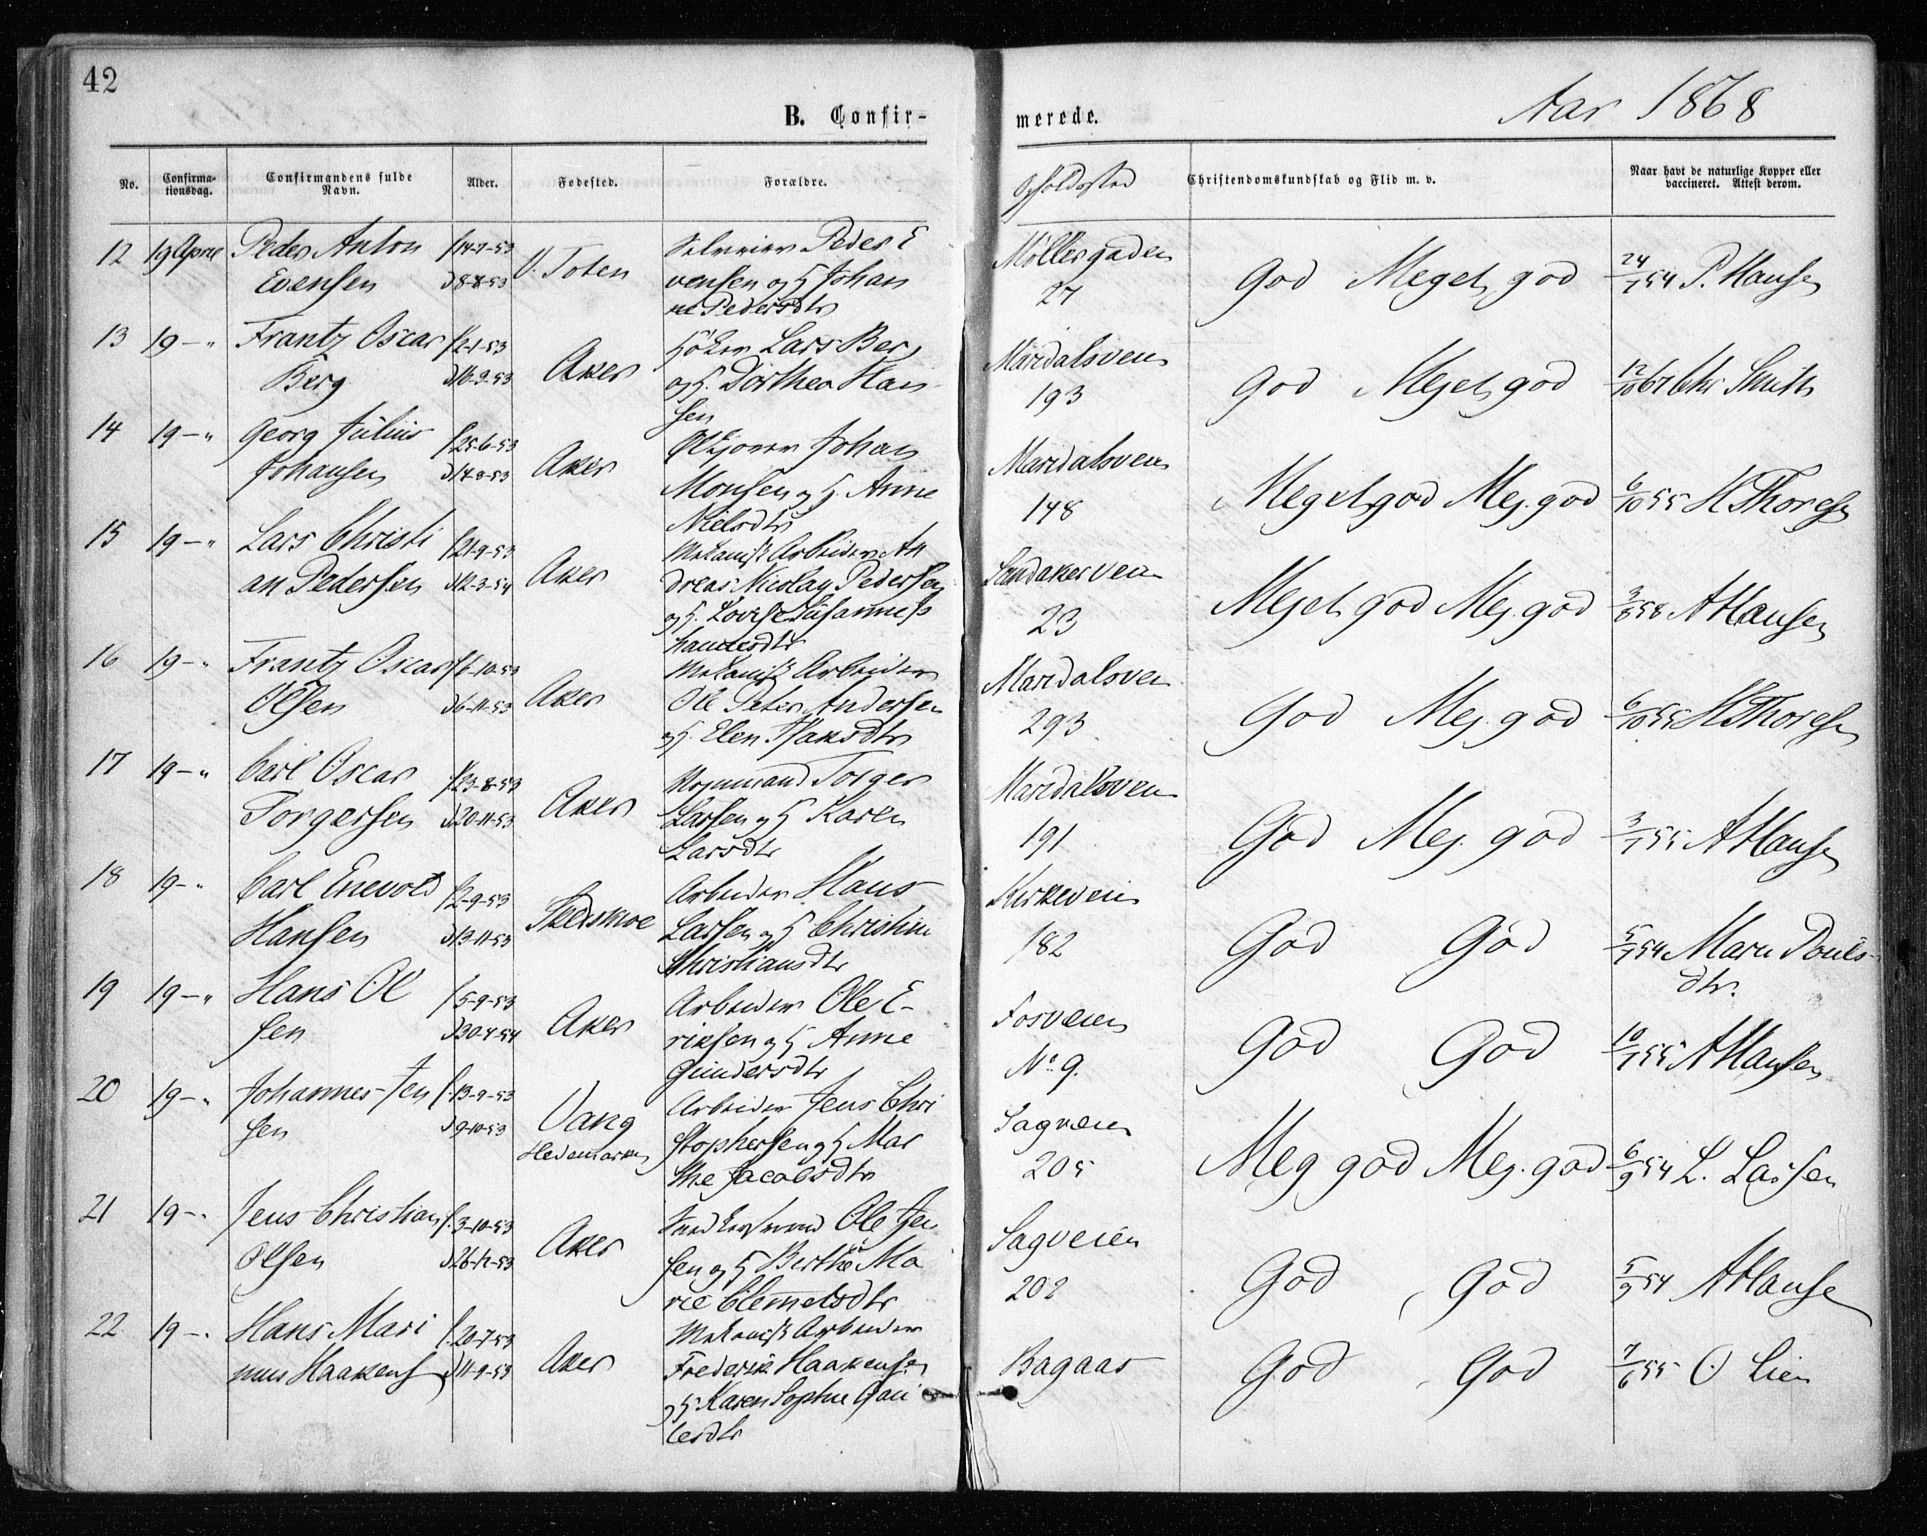 42
B. Confir-
merede.
Aar 1868
No.
Confirma-
tionsdag.
Confirmandens fulde
Navn.
Alder.
Fødested.
Forældre.
Opholdssted
Christendomskundskab og Flid m. v.
Naar havt de naturlige Kopper eller
vaccineret. Attest derom.
12 19 April Peder Anton f14-7-53 V. Toten Peder E Møllergaden God Meget god 24/7 54 P. Hansen
Evensen d8-8-53 vensen og H Johan 27
ne Pedersdtr
13 19 -" Frantz Oscar f2-1-53 Aker Høker Lars Berg Maridalsveien God Meget god 12/10 67 Chr Smith
Berg d16-3-53 og H. Dorthea Han 193
sen
14 19 -" Georg Julius f25-6-53 Aker Johan Maridalsveien Meget god Meg. god 6/10 55 H Thoresen
Johansen d14-8-53 Monsen og H. Anne 148
Nielsdtr
15 19 -" Lars Christi f21-9-53 Aker Mekanisk Arbeider An Sandakerveien Meget god Meg. god 3/8 58 A Hansen
an Pedersen d12-3-54 dreas Nicolay Pedersen 23
og H. Lovise Susanne
16 19 -" Frantz Oscar f6-10-53 Aker Mekanisk Arbeider Maridalsvei God Meg. god 6/10 55 H Thoresen
Olsen d6-11-53 Ole Peter Andersen 293
og H. Elen Isaksdtr
17 19 -" Carl Oscar f23-8-53 Aker Torger Maridalsveien God Meg. god 3/7 55 A Hansen
Torgersen d20-11-53 Larsen og H Karen 191
Larsdtr
18 19 -" Carl Enevold f2-9-53 Skedsmoe Arbeider Hans Kirkeveien God God 5/7 54 Mari Pouls-
Hansen d13-11-53 Larsen og H Christine 182 dtr.
Christiansdtr
19 19 -" Hans Ol f5-9-53 Aker Arbeider Ole E- Fosveien God God 10/7 55 A Hansen
sen d30-4-54 riksen og H Anne No 9.
Gundersdtr
20 19 -" Johannes Jen f.13-9-53 Vang Arbeider Jens Chri Sagveien Meg god Meg. god 6/9 54 L. Larsen
sen d9-10-53 Hedemarken stophersen og H Mar 205
the Jacobsdtr
21 19 -" Jens Christian f.3-10-53 Aker Ole Jen Sagveien God God 5/9 54 A Hansen
Olsen d26-12-53 sen og H Berthe Ma 202
rie Clemetsdtr
22 19 -" Hans Mari f.20-7-53 Aker Mekanisk Arbeider Bagaas God God 7/6 55 O Lien
nus Haakens d11-9-53 Frederik Haakensen
og H Karen Sophie Gau
lersdtr